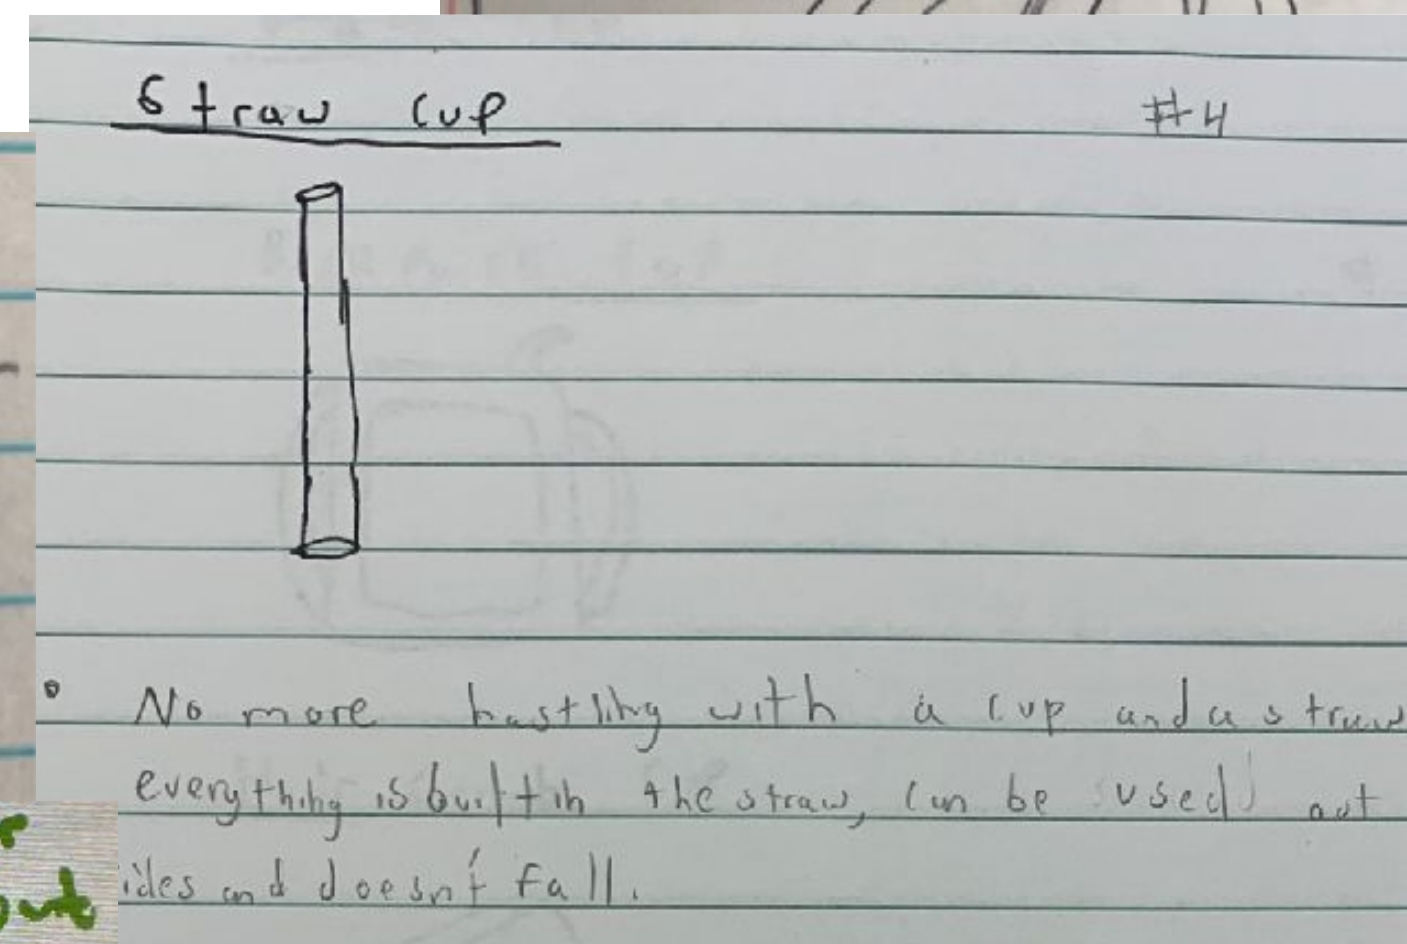 Straw Cup
#4
No more hastling with a cup and a straw
everything is built in the straw, can be used out
ides and doesn't fall.